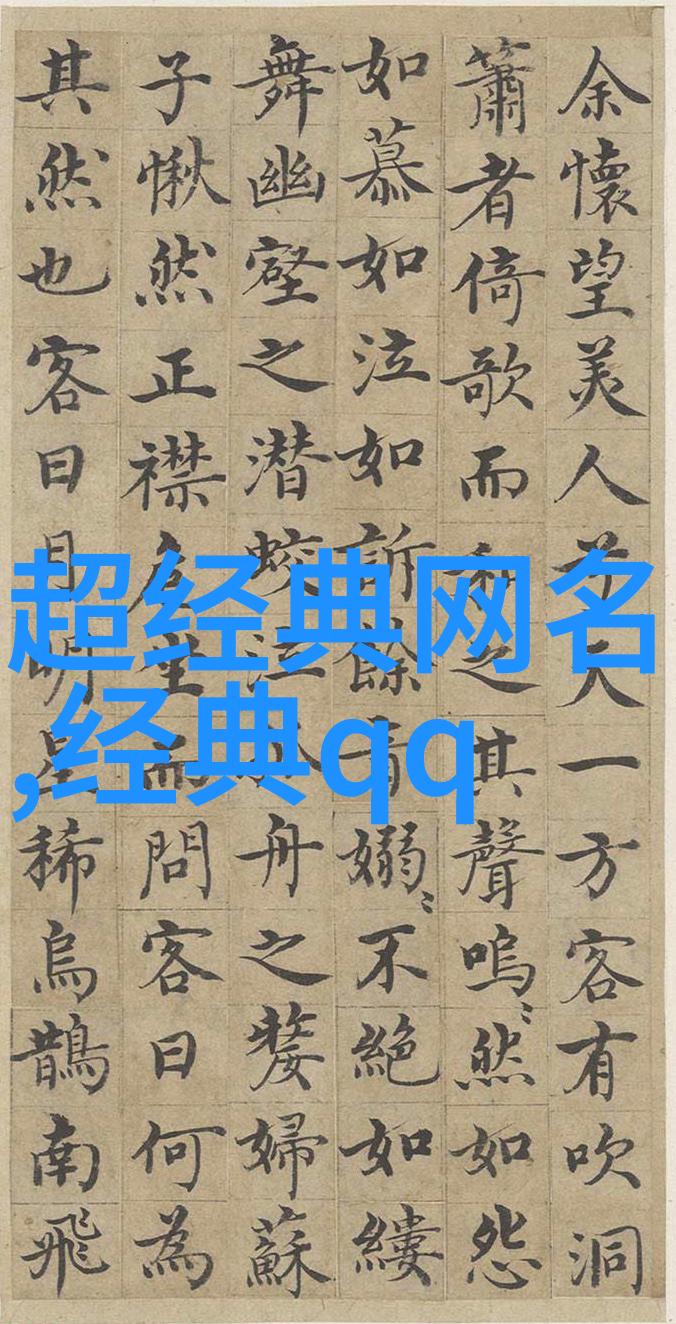 余懷望美人兮天一方客有吹洞
簫者倚歌而和之其聲嗚〻然如怨
如慕如泣如訴餘音嫋〻不絕如縷
舞幽壑之潜蛟泣孤舟之嫠婦蘇
子愀然正襟危坐而問客曰何為
其然也客曰月明星稀烏鵲南飛
超经典网名
,经典qq